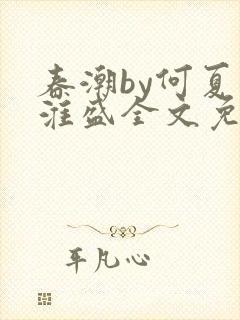 春潮by何夏
淮盛全文免
平凡心